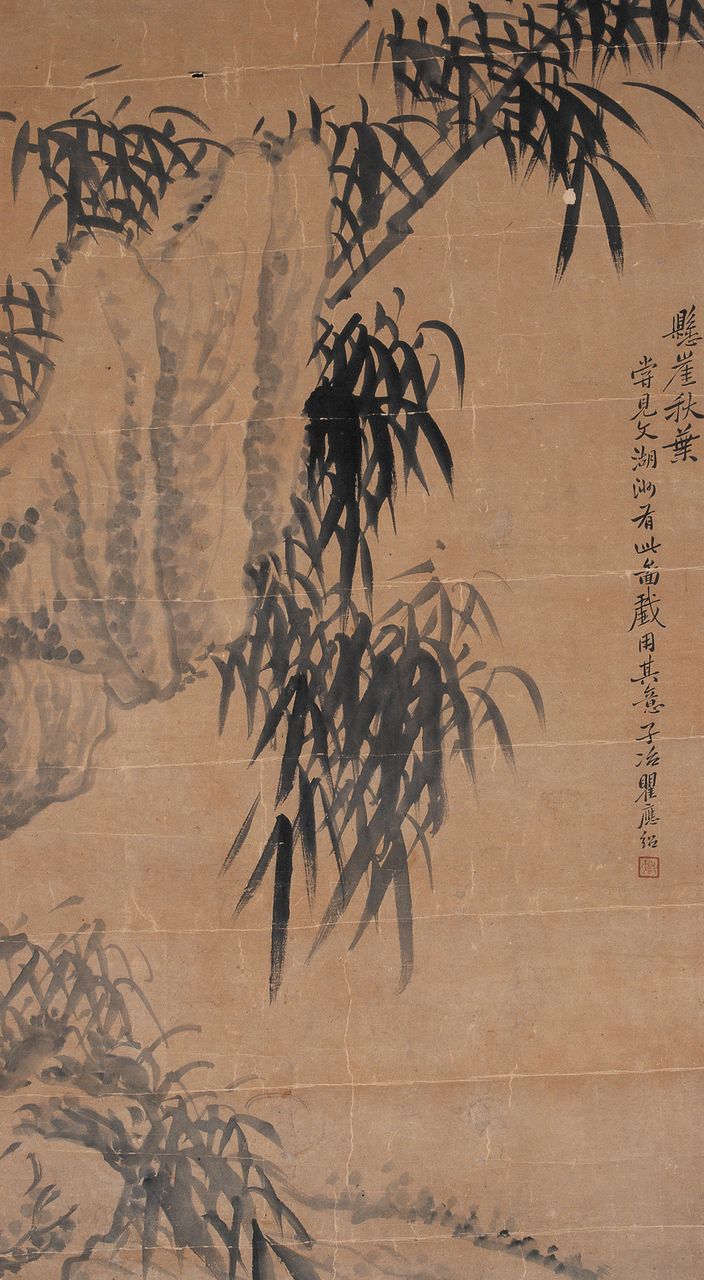 懸崖秋葉
嘗見文湖州有此啚戲用其意子冶瞿應紹